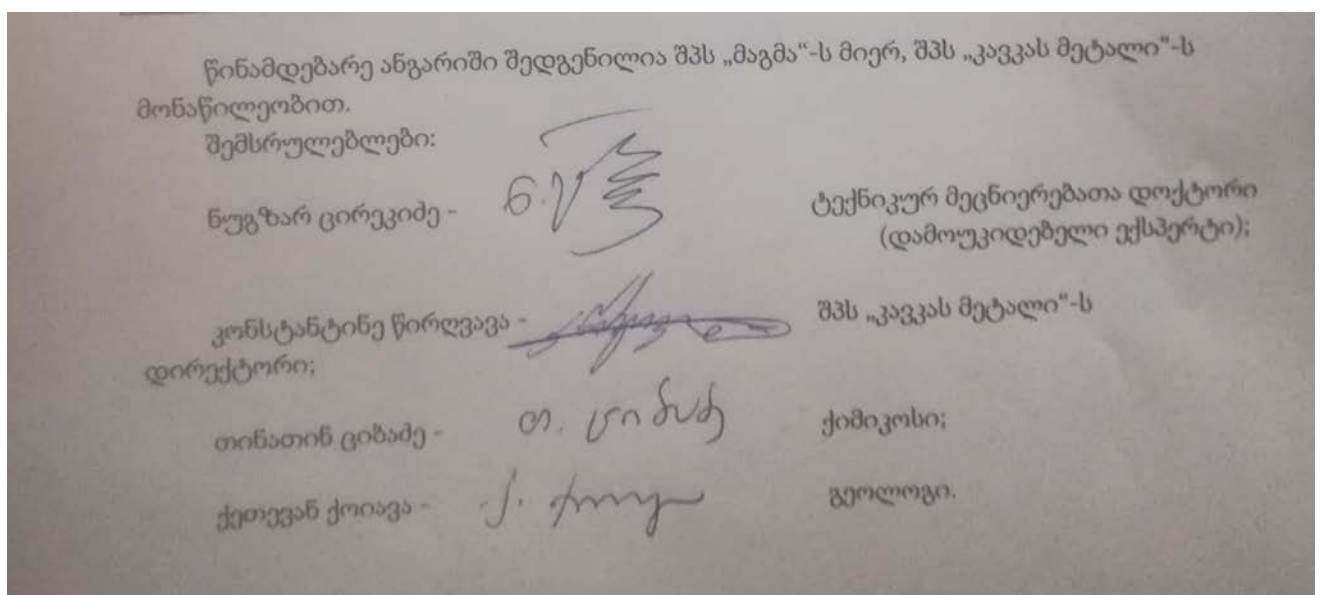 წინამდებარე ანგარიში შედგენილია შპს „მაგმა“-ს მიერ, შპს „კავკას მეტალი“-ს
მონაწილეობით.
შემსრულებლები:
ნუგზარ ცირეკიძე - ტექნიკურ მეცნიერებათა დოქტორი
(დამოუკიდებელი ექსპერტი);
კონსტანტინე წირღვავა - შპს „კავკას მეტალი“-ს
დირექტორი;
თინათინ ციბაძე - ქიმიკოსი;
ქეთევან ქოიავა - გეოლოგი.